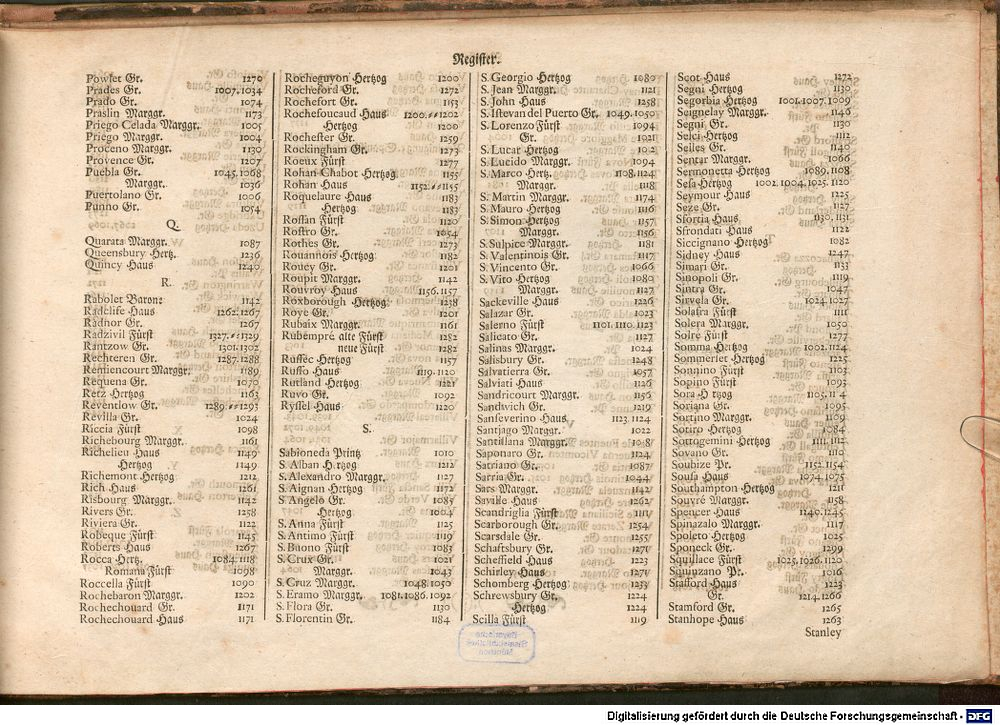 Register.
Powlet Gr. 1270
Prades Gr. 1007.1034
Prado Gr. 1074
Praslin Marggr. 1173
Priego Celada Marggr. 1005
Priego Marggr. 1004
Proceno Marggr. 1130
Provence Gr. 1207
Puebla Gr. 1045.1068
Marggr. 1036
Puertolano Gr. 1006
Punno Gr. 1054
Q.
Quarata Marggr. 1087
Queensbury Hertz. 1236
Quincy Haus 1240
R.
Rabolet Baron: 1142
Radclife Haus 1262.1267
Radnor Gr. 1267
Radzivil Fürst 1327.==1329
Rantzow Gr. 1301.1302
Rechteren Gr. 1287.1288
Remiencourt Marggr. 1189
Requena Gr. 1070
Retz Hertzog 1163
Reventlow Gr. 1289.==1293
Revilla Gr. 1024
Riccia Fürst 1098
Richebourg Marggr. 1161
Richelieu Haus 1149
Hertzog 1149
Richemont Hertzog 1212
Rich Haus 1261
Risbourg Marggr. 1142
Rivers Gr. 1258
Riviera Gr. 1122
Robeque Fürst 1145
Roberts Haus 1267
Rocca Hertz. 1084.1118
Romana Fürst 1098
Roccella Fürst 1090
Rochebaron Marggr. 1202
Rochechouard Gr. 1171
Rochechouard Haus 1171
Rocheguyon Hertzog 1200
Rocheford Gr. 1272
Rochefort Gr. 1153
Rochefoucaud Haus 1200.==1202
Hertzog 1200
Rochester Gr. 1259
Rockingham Gr. 1273
Roeux Fürst 1277
Rohan Chabot Hertzog 1155
Rohan Haus 1152.==1155
Roquelaure Haus 1183
Hertzog 1183
Rossan Fürst 1120
Rostro Gr. 1054
Rothes Gr. 1273
Rouannois Hertzog 1182
Rouey Gr. 1201
Roupit Marggr. 1142
Rouvroy Haus 1156.1157
Roxborough Hertzog 1238
Roye Gr. 1201
Rubaix Marggr. 1161
Rubempré alte Fürst 1282
neue Fürst 1282
Ruffec Hertzog 1157
Ruffo Haus 1119.1120
Rutland Hertzog 1221
Ruvo Gr. 1092
Ryssel Haus 1220
S.
Sabioneda Printz 1010
S. Alban H.rtzog 1212
S. Alexandro Marggr. 1127
S. Aignan Hertzog 1172
S. Angelo Gr. 1085
Hertzog 1004
S. Anna Fürst 1125
S. Antimo Fürst 1119
S. Buono Fürst 1083
S. Crux Gr. 1021
Marggr. 1043
S. Cruz Marggr. 1048.1050
S. Eramo Marggr. 1081.1086.1092
S. Flora Gr. 1130
S. Florentin Gr. 1184
S. Georgio Hertzog 1080
S. Jean Marggr. 1121
S. John Haus 1258
S. Istevan del Puerto Gr. 1049.1050
S. Lorenzo Fürst 1094
Gr. 1021
S. Lucar Hertzog
S. Lucido Marggr. 1094
S. Marco Hertz. 1108.1124
Marggr. 1118
S. Martin Marggr. 1174
S. Mauro Hertzog 1116
S. Simon Hertzog 1157
Marggr. 1156
S. Sulpice Marggr. 1181
S. Valentinois Gr. 1117
S. Vincento Gr. 1066
S. Vito Hertzog 1080
Marggr. 1127
Sackeville Haus 1226
Salazar Gr. 1023
Salerno Fürst 1101.1110.1123
Salicato Gr. 1127
Salinas Marggr. 1024
Salisbury Gr. 1248
Salvatierra Gr. 1057
Salviati Haus 1126
Sandricourt Marggr. 1156
Sandwich Gr. 1219
Sanseverino Haus 1123.1124
Santjago Marggr. 1022
Santillana Marggr.
Saponaro Gr. 1124
Satriano Gr. 1087
Sarria Gr. 1044
Sars Marggr. 1142
Saville Haus 1262
Scandriglia Fürst 1111
Scarborough Gr. 1254
Scarsdale Gr. 1255
Schaftsbury Gr. 1271
Scheffield Haus 1223
Schirley Haus 1271
Schomberg Hertzog 1233
Schrewsbury Gr. 1224
Hertzog 1224
Scilla Fürst 1119
Scot Haus 1272
Segni Hertzog 1130
Segorbia Hertzog 1001.1007.1009
Seignelay Marggr. 1146
Segni Gr. 1130
Selci Hertzog 1112
Selles Gr. 1140
Sentar Marggr. 1066
Sermonetta Hertzog 1089.1108
Sesa Hertzog 1002.1004.1025.1120
Seymour Haus 1225
Seze Gr. 1127
Sfortia Haus 1130.1131
Sfrondati Haus 1122
Siccignano Hertzog 1082
Sidney Haus 1247
Simari Gr. 1133
Sinopoli Gr. 1119
Sintra Gr. 1047
Sirvela Gr. 1024.1027
Solatra Fürst 1111
Solera Marggr. 1050
Solre Fürst 1277
Somma Hertzog 1002.1124
Sommerset Hertzog 1225
Sonnino Fürst 1103
Sopino Fürst 1093
Sora H rtzog 1105.11 4
Soriana Gr. 1095
Sortino Marggr. 1109
Sotiro Hertzog 1084
Sottogemini Hertzog 1111.1112
Sovano Gr. 1110
Soubize Pr. 1152.1154
Sousa Haus 1074.1075
Southampton Hertzog 1211
Souvré Marggr. 1158
Spencer Haus 1140.1245
Spinazalo Marggr. 1117
Spoleto Hertzog 1025
Sponeck Gr. 1299
Squillace Fürst 1025.1026.1120
Squinzano Pr. 1016
Stafford Haus 1223
Gr. 1214.1266
Stamford Gr. 1265
Stanhope Haus 1263
Stanley
Bayerische
Staatsbibliothek
München
Digitalisierung gefördert durch die Deutsche Forschungsgemeinschaft - DFG